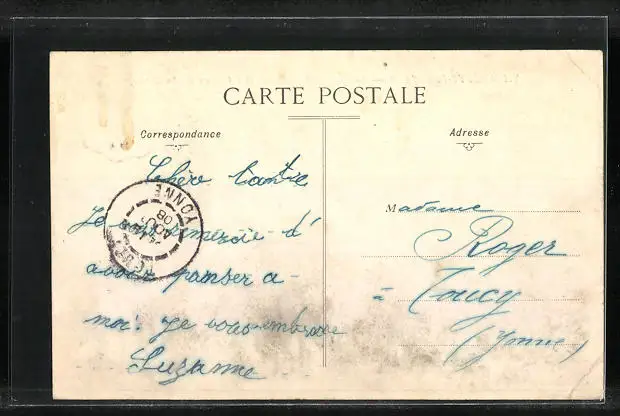 CARTE POSTALE
Correspondance
Adresse
Chère tante
Je vous remercie d'
avoir panser a-
moi. Je vous embrasse
Suzanne
Madame
Roger
à Toucy
(Yonne)
YONNE
08